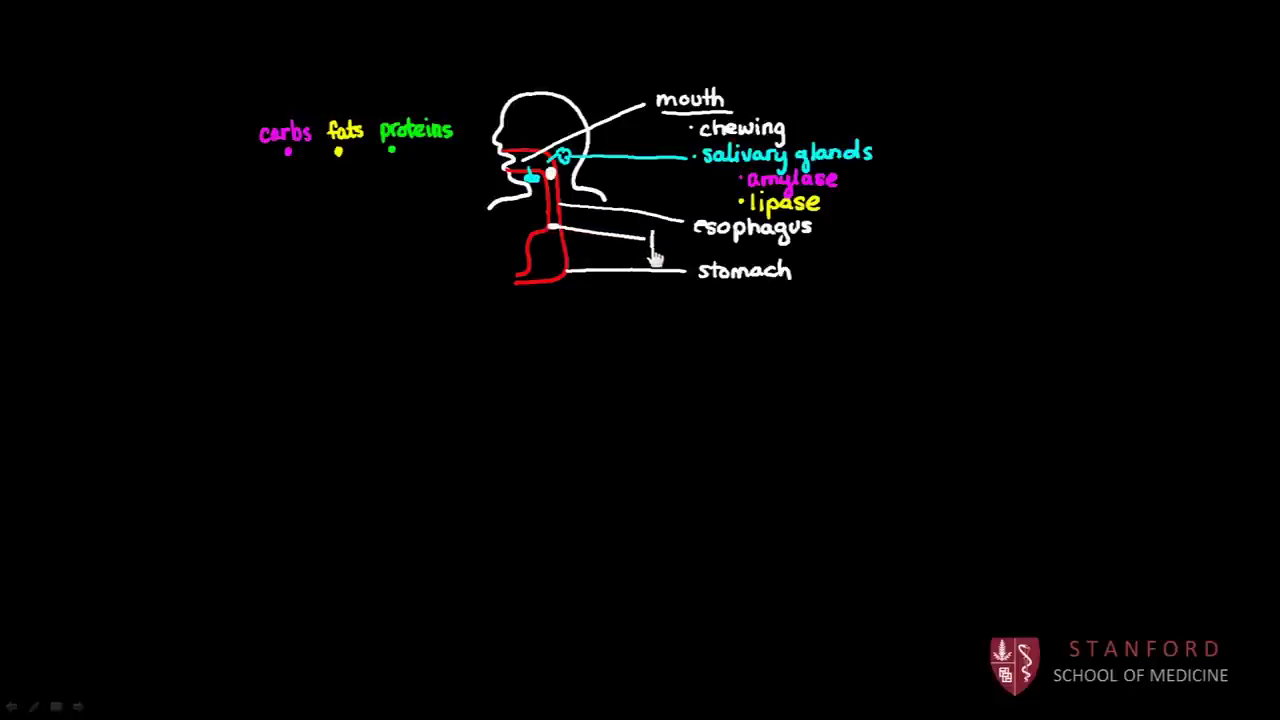 carbs fats proteins
mouth
· chewing
· salivary glands
· amylase
· lipase
esophagus
stomach
STANFORD
SCHOOL OF MEDICINE